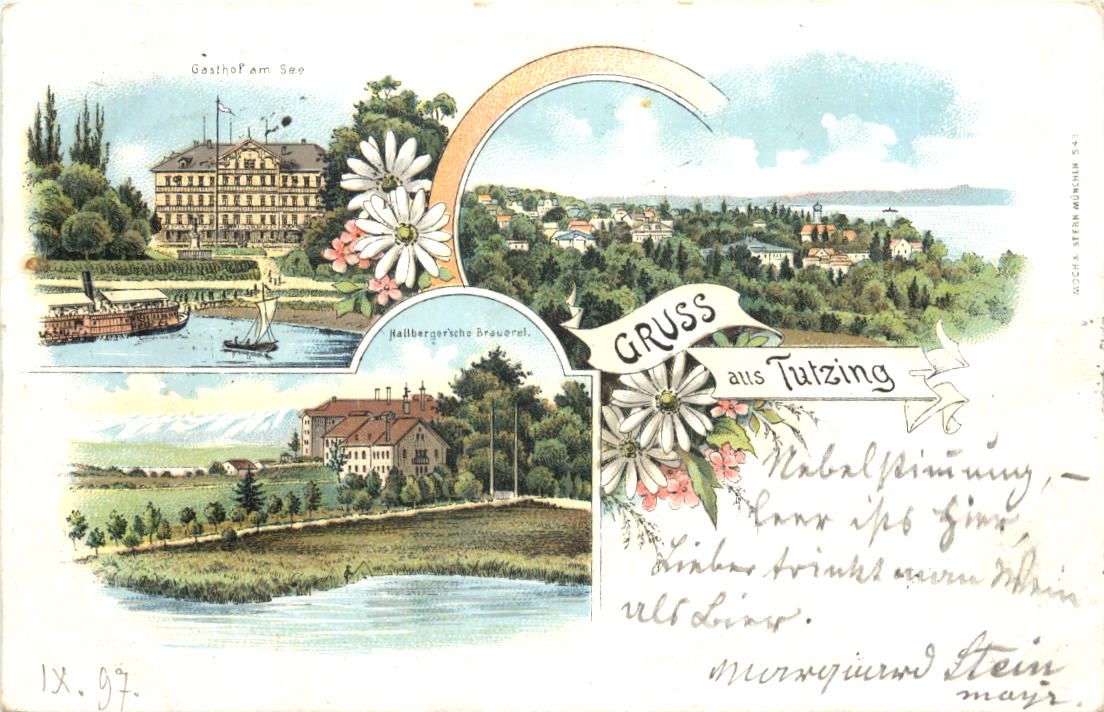 Gasthof am See
Hallberger'sche Brauerei.
GRUSS
aus Tutzing
MOCH & STERN MÜNCHEN 543
Nebelstimung, –
leer ists hier,
Lieber trinkt man Wein
als Bier.
Marquard Stein
mayr.
IX. 97.